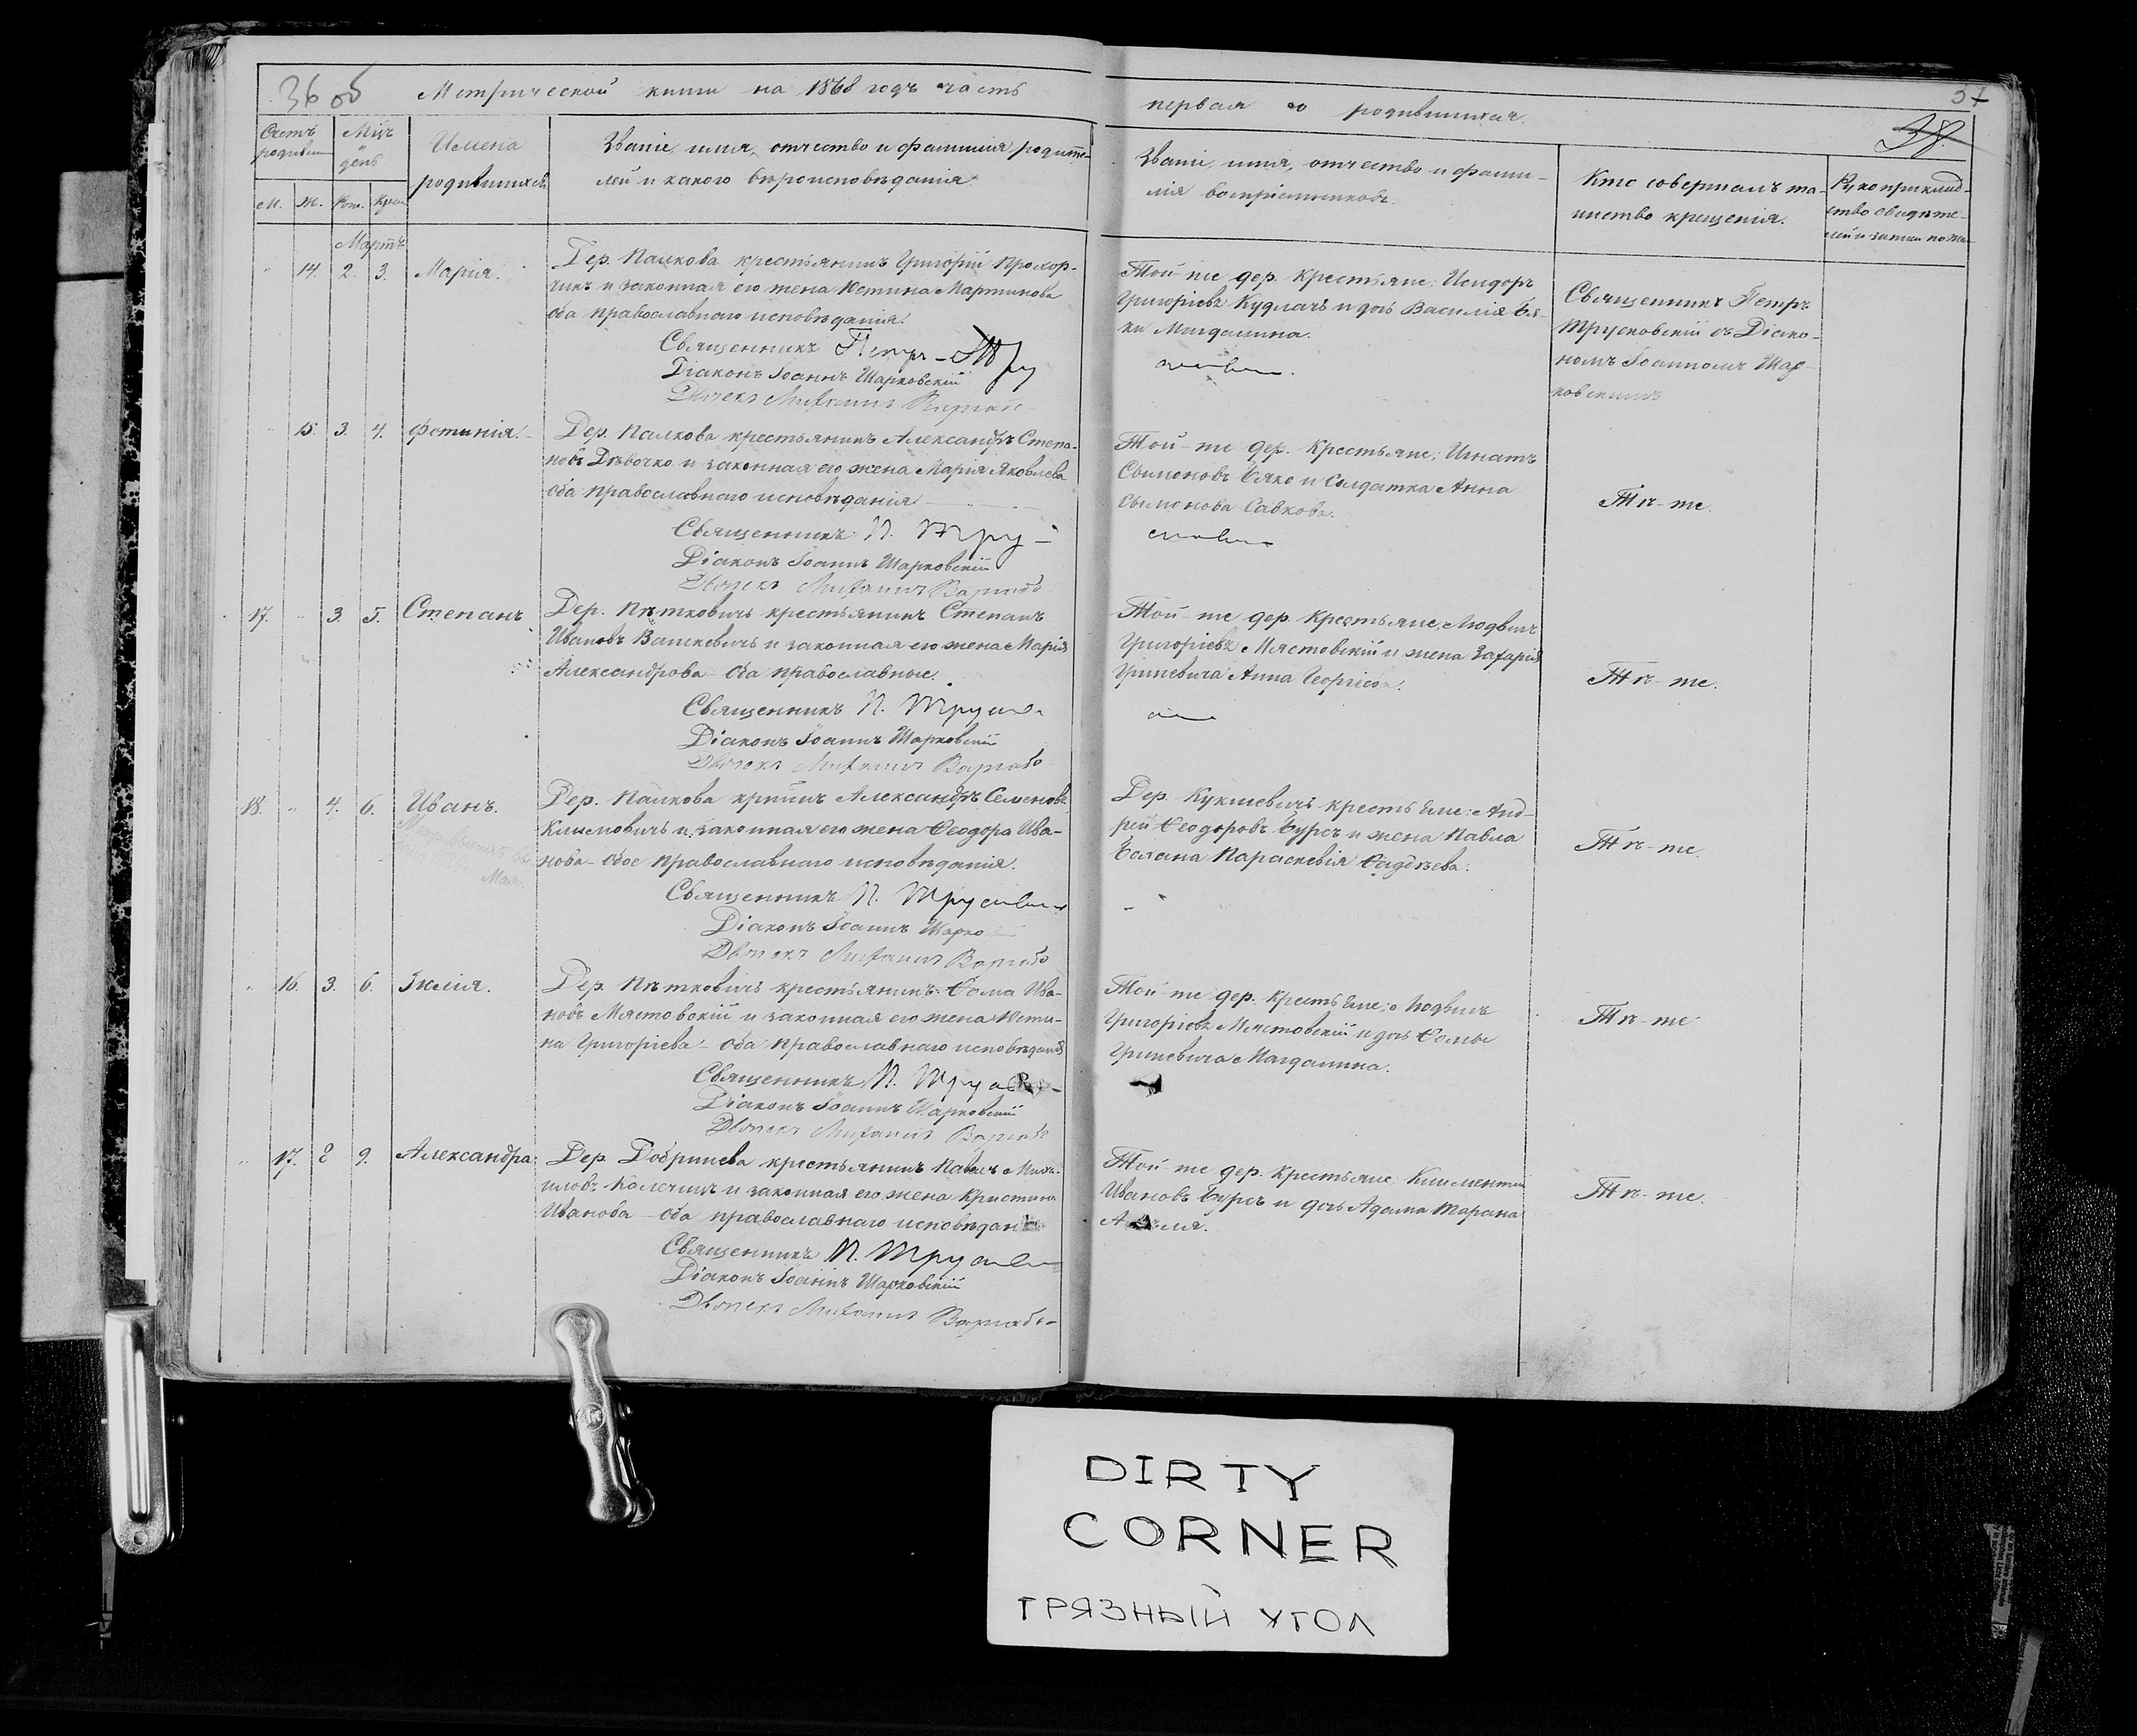 36 об
Метрической книги на 1868 годъ часть
первая о родившихся.
37
38.
Счетъ родивш.
Мѣц. и день
Имена родившихся
Званіе, имя, отчество и фамилія родите-
лей и какого вѣроисповѣданія.
Званіе, имя, отчество и фами-
лія воспріемниковъ.
Кто совершалъ та-
инство крещенія.
Рукоприклад-
ство свидѣте-
М. Ж. Рож. Крещ.
Мартъ
14. 2. 3. Марія.
Дер. Палкова крестьянинъ Григорій Прохор-
чикъ и законная его жена Юстина Мартинова
оба православнаго исповѣданія.
Священникъ Петръ Тру
Діаконъ Іоаннъ Шарковскій
Той-же дер. крестьяне: Исидоръ
Григоріевъ Кудлачъ и дочь Василія Бя-
ки Магдалина.
Священникъ Петръ
Трусковскій съ Діако-
номъ Іоанномъ Шар-
ковскимъ
15. 3. 4. Фотинія.
Дер. Палкова крестьянинъ Александръ Степа-
новъ Дѣвочко и законная его жена Марія Яковлева
оба православнаго исповѣданія
Священникъ П. Тру
Діаконъ Іоаннъ Шарковскій
Той-же дер. крестьяне; Игнатъ
Сымоновъ Бяко и солдатка Анна
Сымонова Савкова.
Тѣ-же.
17. 3. 5. Степанъ
Дер. Пѣтковичъ крестьянинъ Степанъ
Ивановъ Вашкевичъ и законная его жена Марія
Александрова - оба православные.
Священникъ П. Труск
Діаконъ Іоаннъ Шарковскій
Той-же дер. крестьяне, Людвигъ
Григоріевъ Мястовскій и жена Захарія
Гриневича Анна Георгіева.
Тѣ-же.
18. 4. 6. Иванъ.
Дер. Палкова кр-нинъ Александръ Семеновъ
Климовичъ и законная его жена Ѳеодора Ива-
нова - обое православнаго исповѣданія.
Священникъ П. Трусков
Діаконъ Іоаннъ Шарко
Дер. Кукшевичъ крестьяне: Анд-
рей Ѳеодоровъ Бурсъ и жена Павла
Болана Параскевія Ѳаддѣева.
Тѣ-же.
16. 3. 6. Юлія.
Дер. Пѣтковичъ крестьянинъ Ѳома Ива-
новъ Мястовскій и законная его жена Юсти-
на Григоріева - оба православнаго исповѣданія
Священникъ П. Труск
Діаконъ Іоаннъ Шарковскій
Той-же дер. крестьяне: Людвигъ
Григоріевъ Мястовскій и дочь Ѳомы
Гриневича Магдалина.
Тѣ-же
17. 8 9. Александра.
Дер. Добринева крестьянинъ Павелъ Миха-
иловъ и законная его жена Кристина
Иванова - оба православнаго исповѣдан
Священникъ П. Трусков
Діаконъ Іоаннъ Шарковскій
Той-же дер. крестьяне, Климентій
Ивановъ Бурсъ и дочь Адама Тарана
Тѣ-же.
DIRTY
CORNER
ГРЯЗНЫЙ УГОЛ